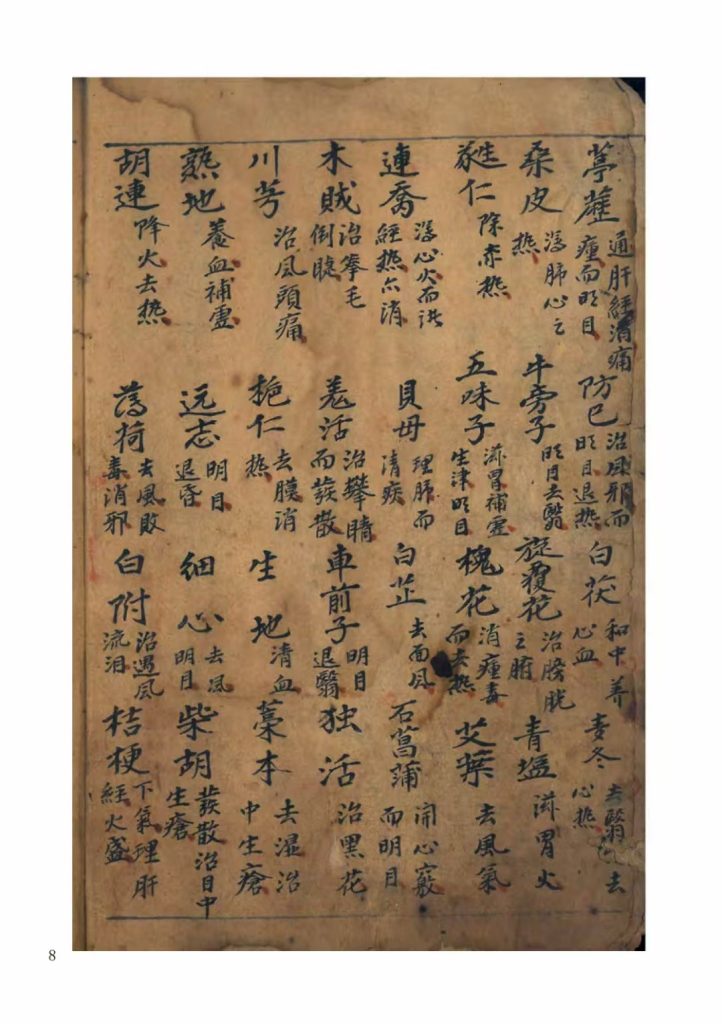 葶藶 通肝經消痛瘇而明目 防巳 治风邪而明目退热 白茯 和中养心血 麦冬 去翳去心热
桑皮 泻肺心之热 牛旁子 明目去翳 旋覆花 治膀胱之腑 青塩 滋胃火
蕤仁 除赤热 五味子 滋胃補虚生津明目 槐花 消瘇毒而去热 艾葉 去風氣
連喬 泻心火而経热六消 貝母 理肺而清痰 白芷 去面风 石菖蒲 開心竅而明目
木賊 治拳毛倒睫 羗活 治攀睛而發散 車前子 明目退翳 独活 治黑花
川芎 治风頭痛 栀仁 去膜消热 生地 清血 藁本 去湿治中生瘡
熟地 养血補虚 远志 明目退昏 细心 去风明目 柴胡 發散治目中生瘡
胡連 降火去热 薄荷 去風敗毒消邪 白附 治遇风流泪 桔梗 下氣理肝經火盛
8